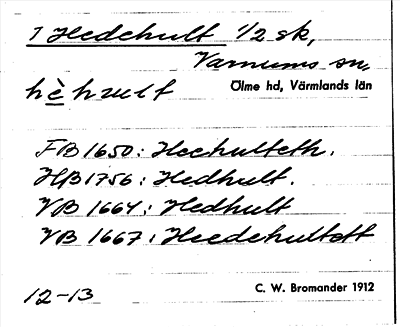 1 Hedehult 1/2 sk,
Varnums sn,
hèhzult Ölme hd, Värmlands län
FB 1650: Hechulteth.
HB 1756: Hedhult.
VB 1664: Hedhult
VB 1667: Heedehultett
12-13 C. W. Bromander 1912